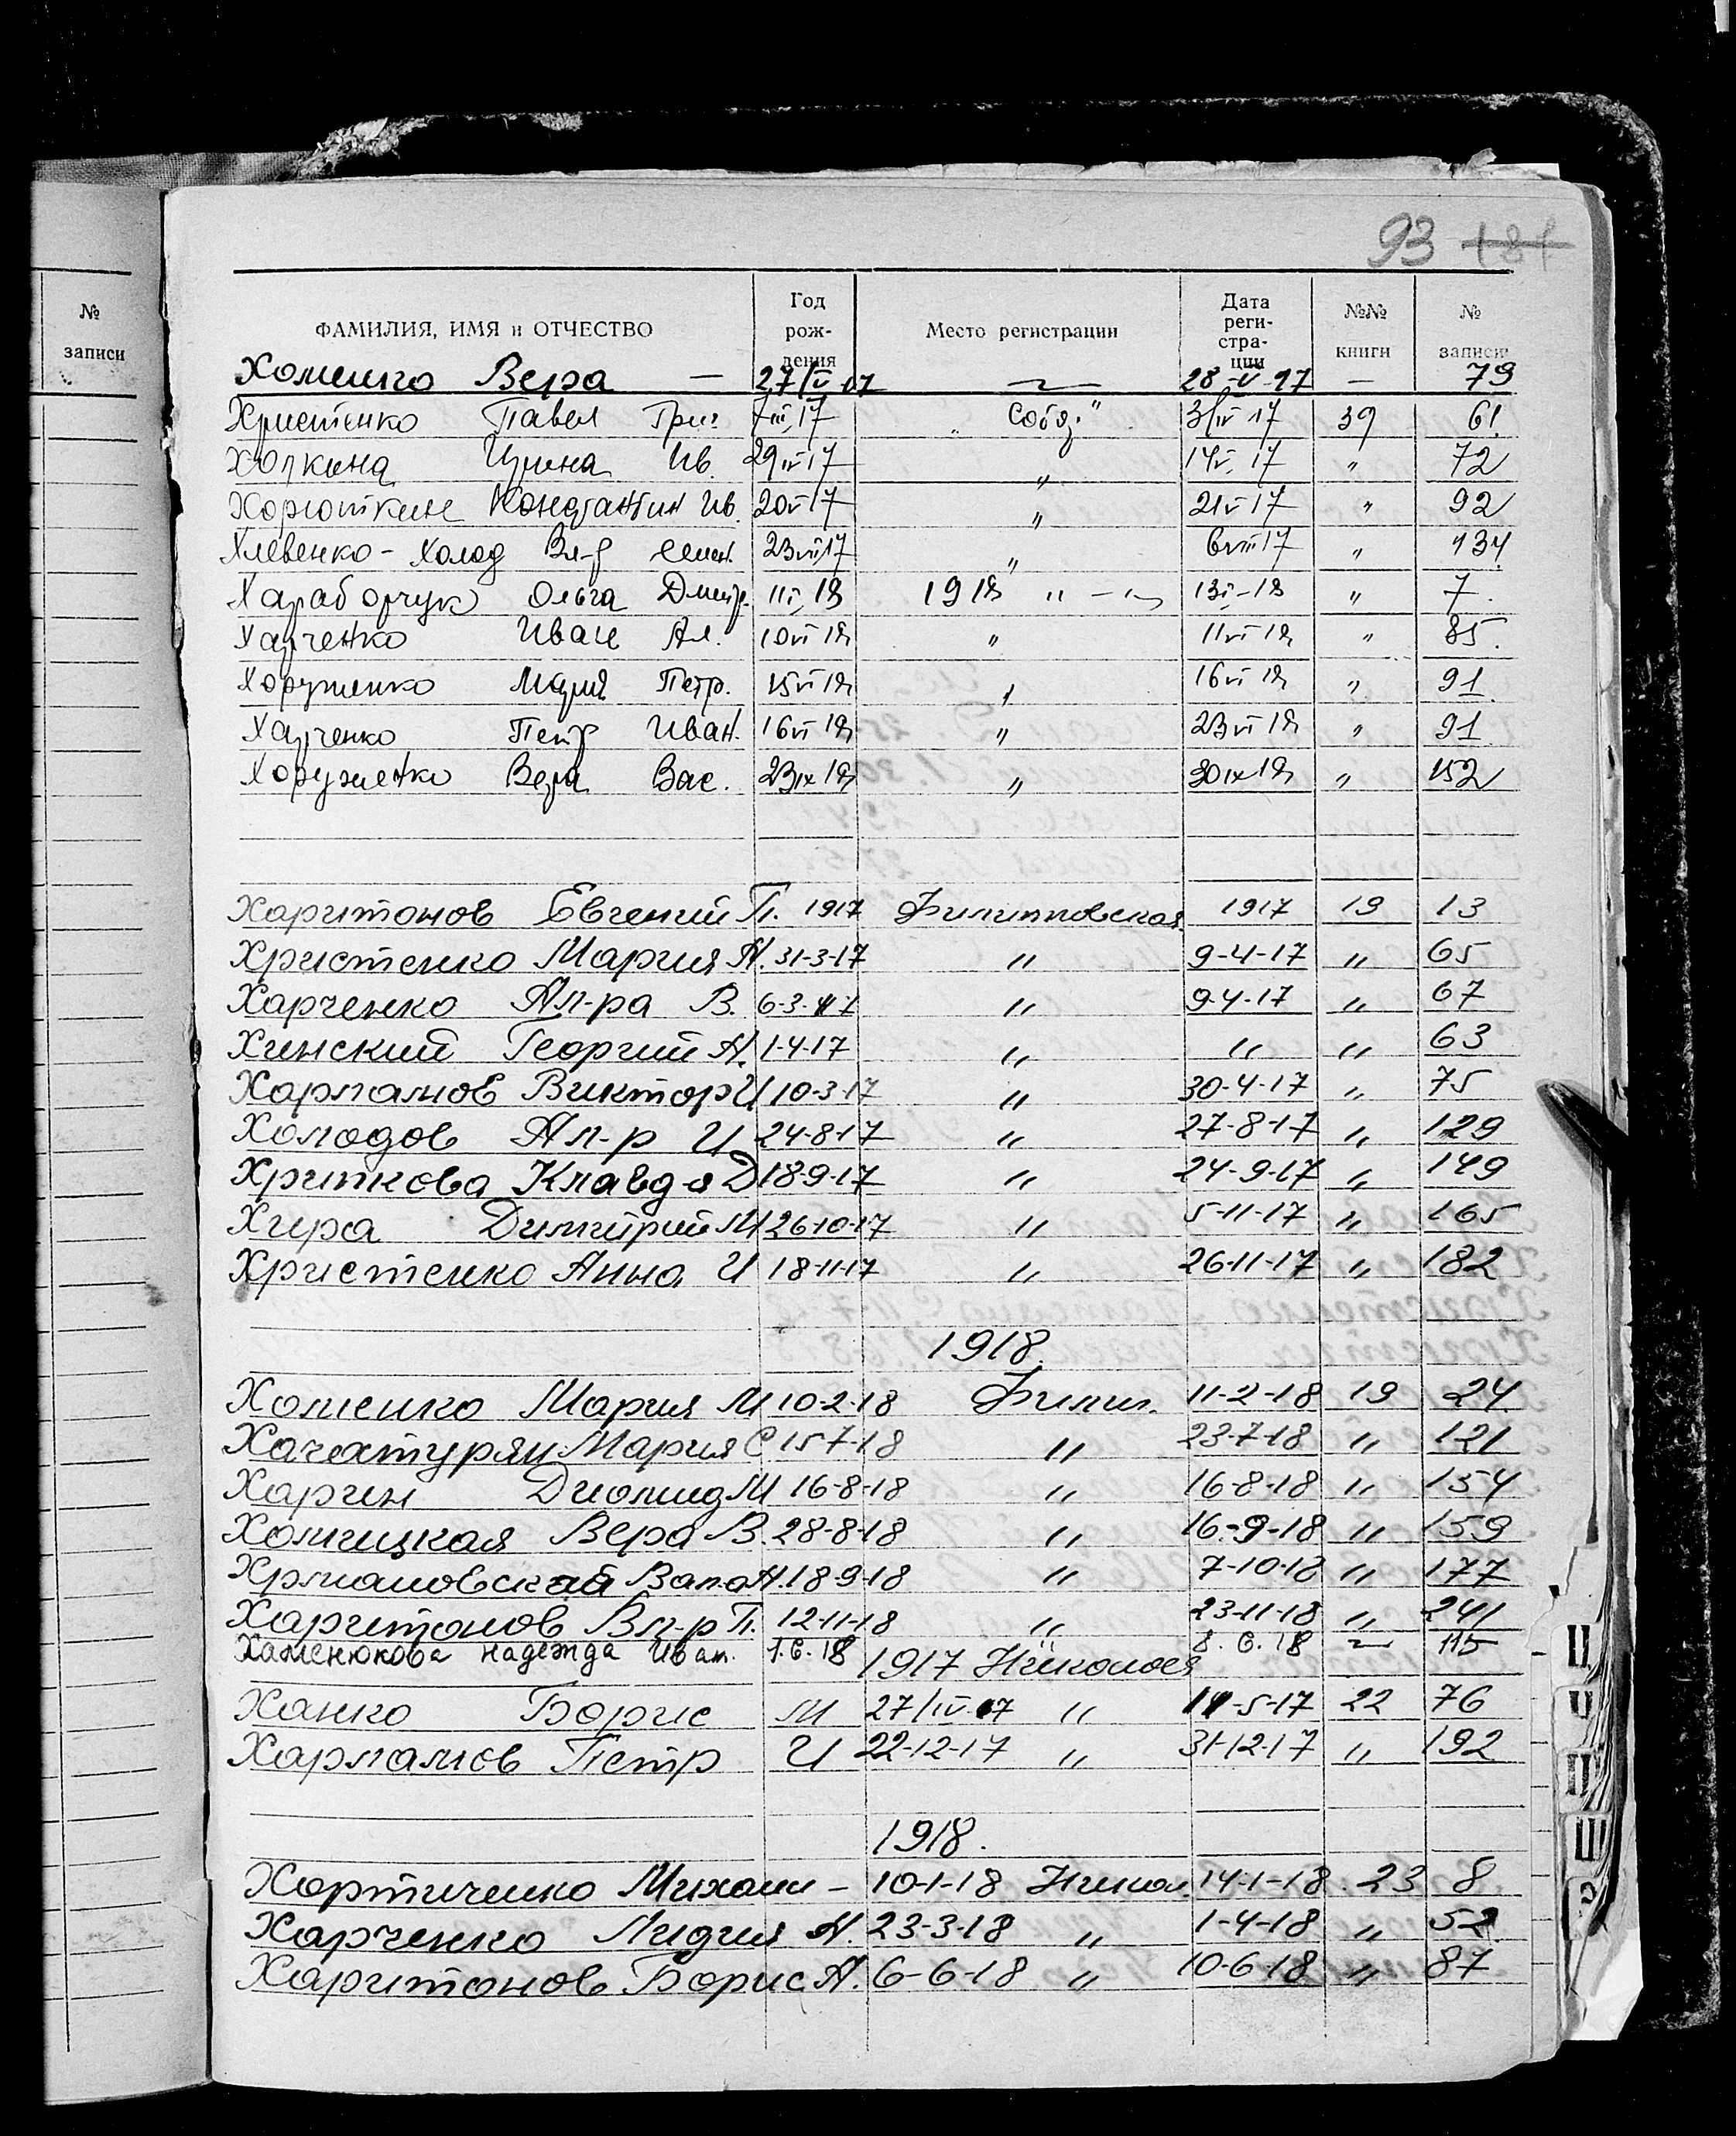 93 181
№ записи
ФАМИЛИЯ, ИМЯ и ОТЧЕСТВО Год рож- дения Место регистрации Дата реги- стра- ции №№ книги № записи
Хоменко Вера — 27/IV-17 —〃— 28-V-17 — 79
Христенко Павел Григ 7III,17 „ Собор." 3/IV 17 39 61.
Холкина Ирина Ив. 29IV17 „ 14V,17 „ 72
Хорюткин Константин Ив. 20V17 „ 21V17 „ 92
Хлевенко-Холод Вл-р Семен. 23VII17 „ 6VIII17 „ 134
Хараборчук Ольга Дмитр. 11I,18 1918 „ — „ 13I-18 „ 7.
Харченко Иван Ал. 10VI 18 „ 11VI 18 „ 85.
Хоруженко Мария Петр. 15VI18 „ 16VI 18 „ 91
Харченко Петр Иван. 16VI 18 „ 23VI 18 „ 91
Хоруженко Вера Вас. 23IX 18 „ 30IX18 „ 152
Харитонов Евгений П. 1917 Филипповская 1917 19 13
Христенко Мария А. 31-3-17 „ 9-4-17 „ 65
Харченко Ал-ра В. 6-3-17 „ 9-4-17 „ 67
Хинский Георгий А. 1-4-17 „ „ „ 63
Харламов Виктор И 10-3-17 „ 30-4-17 „ 75
Холодов Ал-р И 24-8-17 „ 27-8-17 „ 129
Хрипкова Клавд-я Д 18-9-17 „ 24-9-17 „ 149
Хира Димитрий М 26-10-17 „ 5-11-17 „ 165
Христенко Анна И 18-11-17 „ 26-11-17 „ 182
1918.
Хоменко Мария М 10-2-18 Филип. 11-2-18 19 24
Хачатурян Мария С 15-7-18 „ 23-7-18 „ 121
Харин Диомид М 16-8-18 „ 16-8-18 „ 154
Хомицкая Вера В. 28-8-18 „ 16-9-18 „ 159
18-9-18 „ 7-10-18 „ 177
Харитонов Вл-р П. 12-11-18 „ 23-11-18 „ 241
Хаменюкова Надежда Иван. 1.6.18 8.6.18 〃 115
1917 Николоев
Ханко Борис М 27/IV-17 „ 14-5-17 22 76
Харламов Петр И 22-12-17 „ 31-12-17 „ 192
1918.
Хортиченко Михаил – 10-1-18 Никол. 14-1-18 23 8
Харченко Лидия А. 23-3-18 „ 1-4-18 „ 52
Харитонов Борис А. 6-6-18 „ 10-6-18 „ 87